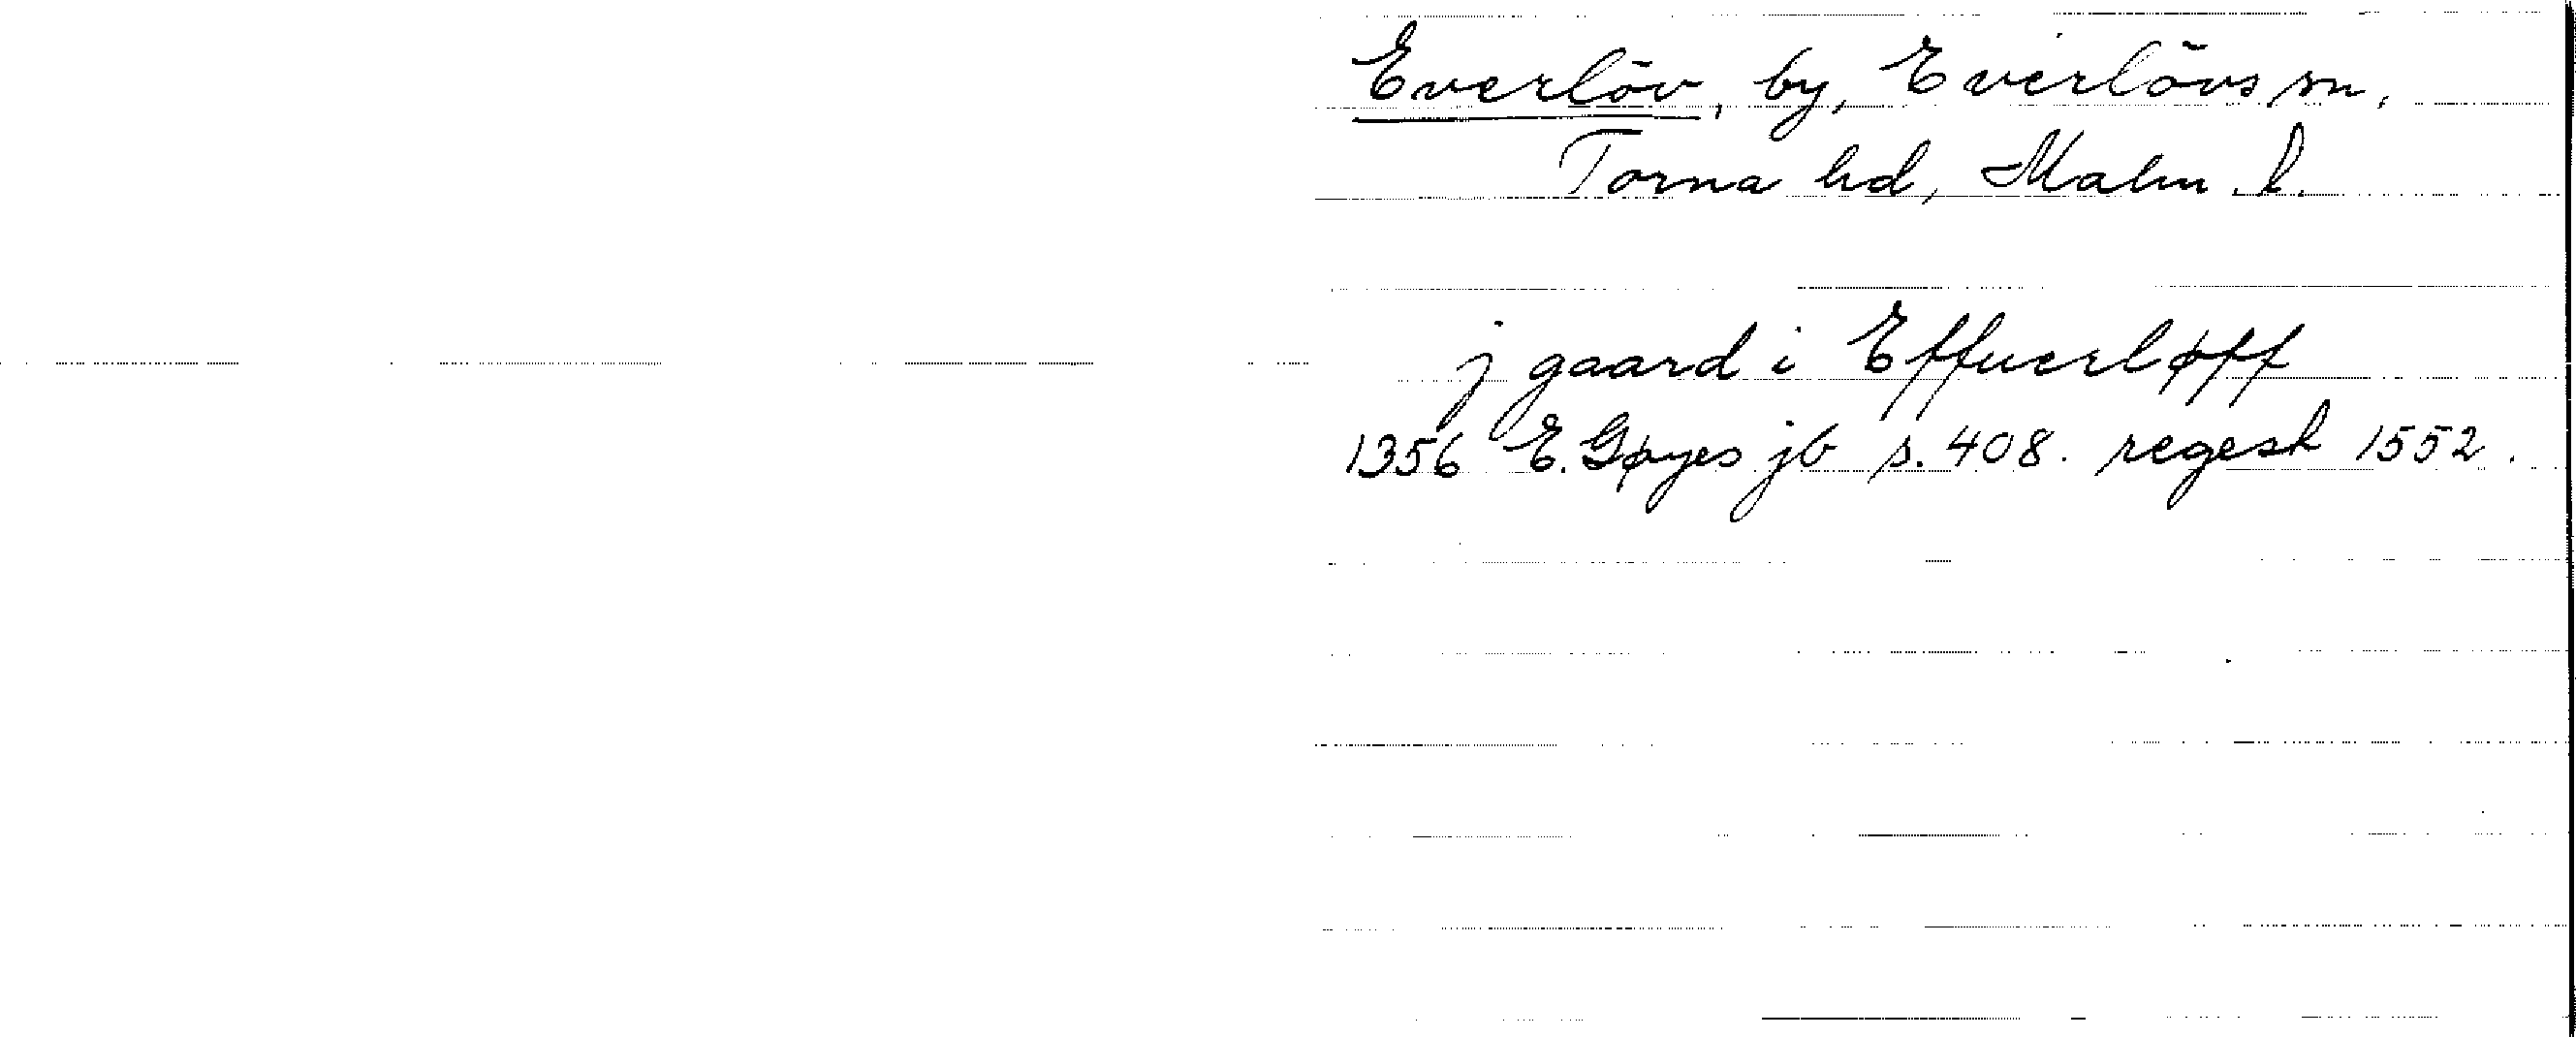 Everlöv, by, Everlövs sn,
Torna hd, Malm. l.
j gaard i Effuerløff
1356 E. Gøyes jb s. 408. regest 1552.